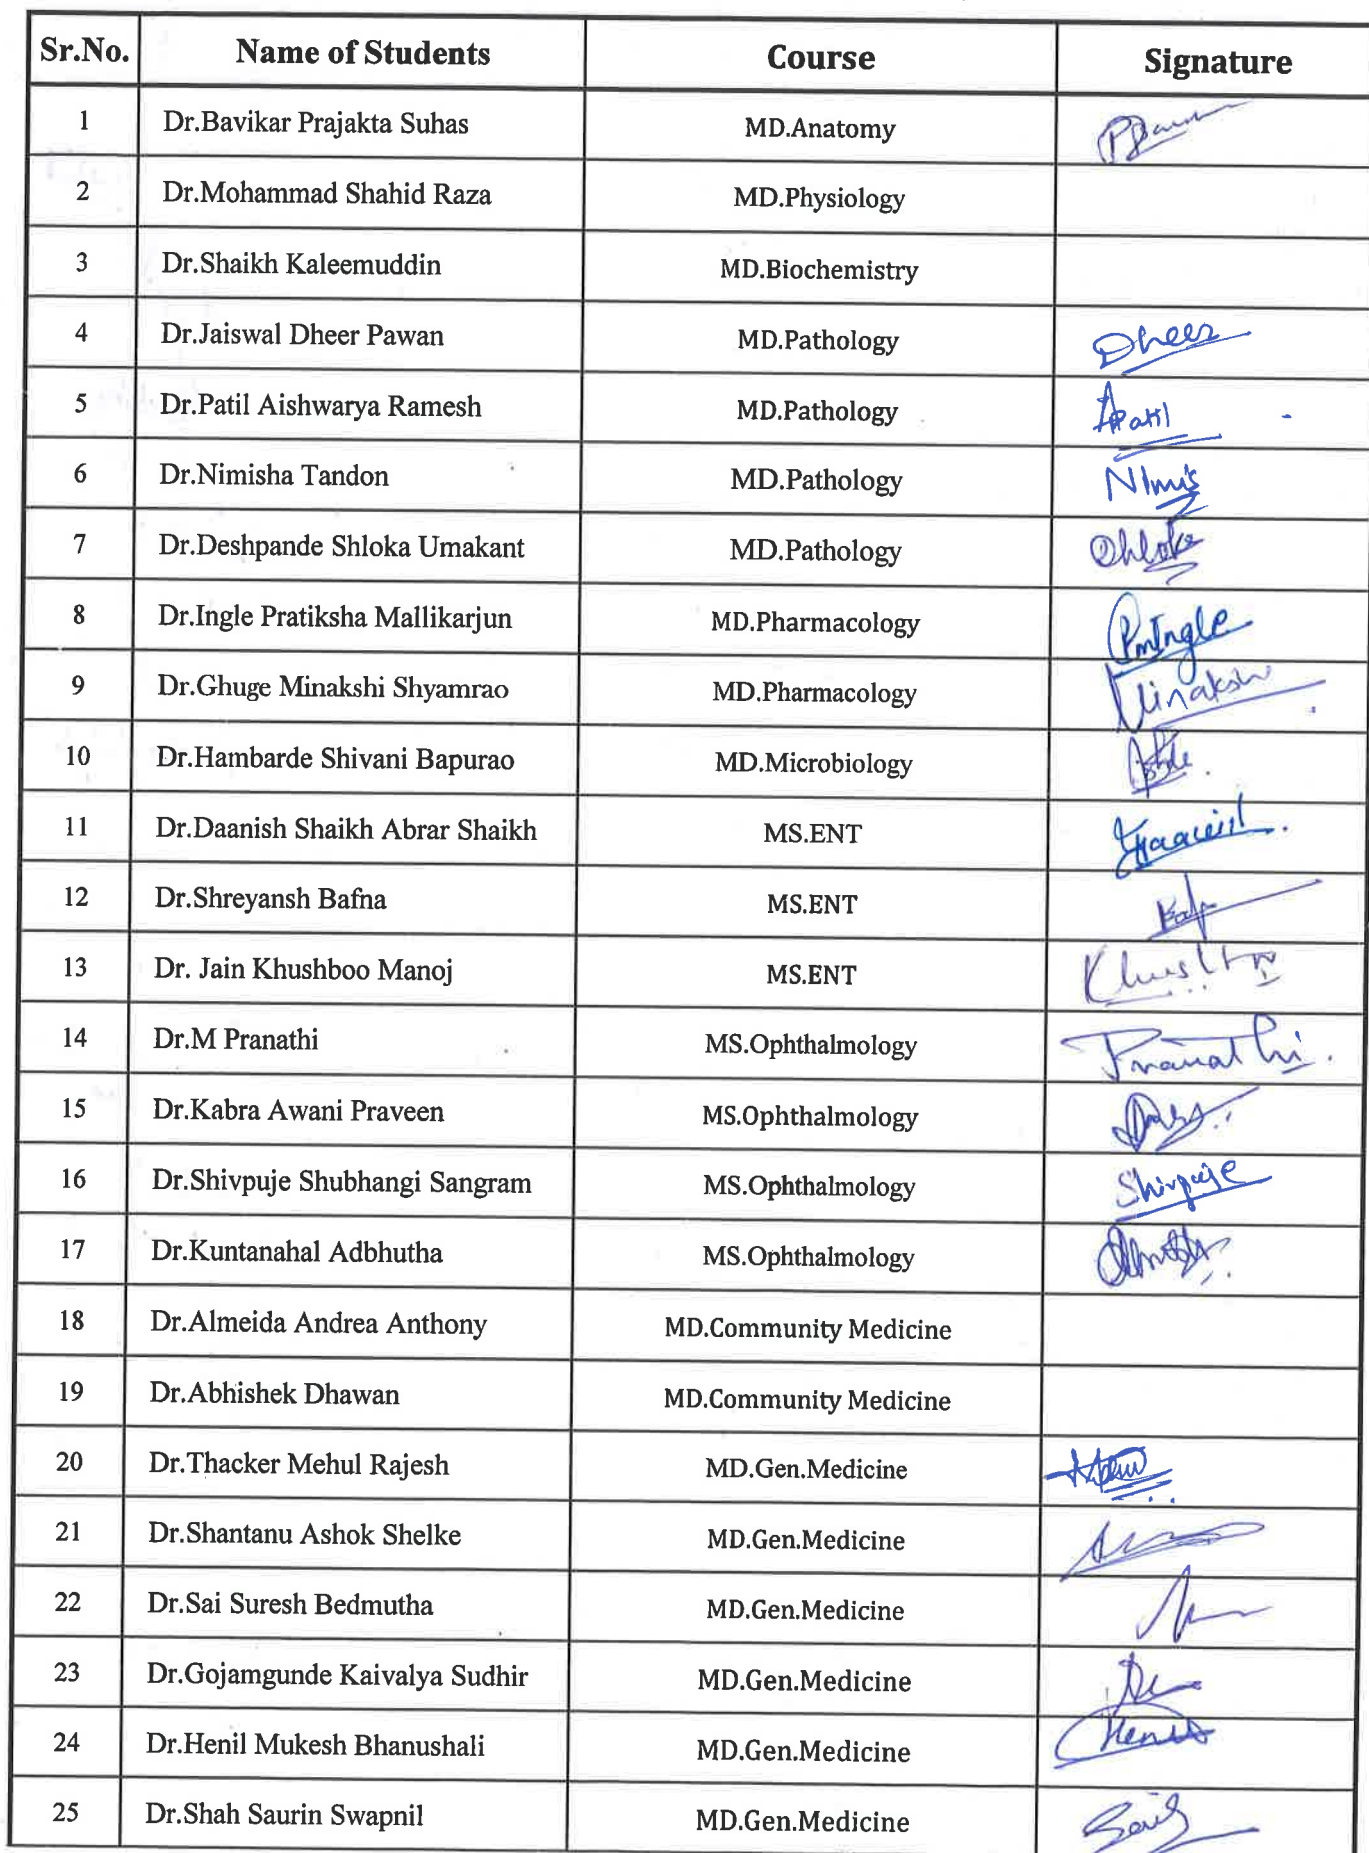 Sr.No. Name of Students Course Signature
1 Dr.Bavikar Prajakta Suhas MD.Anatomy
2 Dr.Mohammad Shahid Raza MD.Physiology
3 Dr.Shaikh Kaleemuddin MD.Biochemistry
4 Dr.Jaiswal Dheer Pawan MD.Pathology Dheer
5 Dr.Patil Aishwarya Ramesh MD.Pathology APatil
6 Dr.Nimisha Tandon MD.Pathology Nimis
7 Dr.Deshpande Shloka Umakant MD.Pathology
8 Dr.Ingle Pratiksha Mallikarjun MD.Pharmacology PmIngle
9 Dr.Ghuge Minakshi Shyamrao MD.Pharmacology Minakshi
10 Dr.Hambarde Shivani Bapurao MD.Microbiology
11 Dr.Daanish Shaikh Abrar Shaikh MS.ENT
12 Dr.Shreyansh Bafna MS.ENT
13 Dr. Jain Khushboo Manoj MS.ENT
14 Dr.M Pranathi MS.Ophthalmology Pranathi.
15 Dr.Kabra Awani Praveen MS.Ophthalmology
16 Dr.Shivpuje Shubhangi Sangram MS.Ophthalmology Shivpuje
17 Dr.Kuntanahal Adbhutha MS.Ophthalmology
18 Dr.Almeida Andrea Anthony MD.Community Medicine
19 Dr.Abhishek Dhawan MD.Community Medicine
20 Dr.Thacker Mehul Rajesh MD.Gen.Medicine
21 Dr.Shantanu Ashok Shelke MD.Gen.Medicine
22 Dr.Sai Suresh Bedmutha MD.Gen.Medicine
23 Dr.Gojamgunde Kaivalya Sudhir MD.Gen.Medicine
24 Dr.Henil Mukesh Bhanushali MD.Gen.Medicine
25 Dr.Shah Saurin Swapnil MD.Gen.Medicine